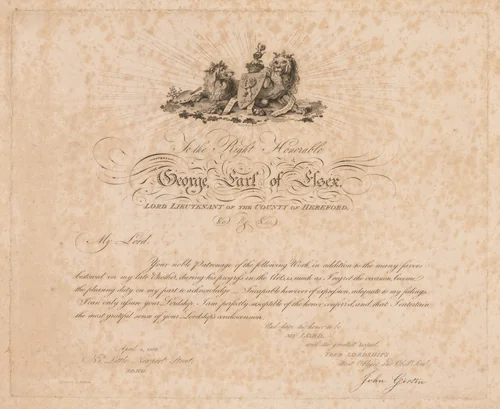 To the Right Honorable
George, Earl of Essex.
Lord Lieutenant of the County of Hereford.
&c. & &c.
My Lord.
Your noble Patronage of the following Work, in addition to the many favors
bestowed on my late Brother, during his progress in the Art, as much as I regret the occasion, become
the pleasing duty on my part to acknowledge. Incapable however of expression adequate to my feelings
I can only assure your Lordship, I am perfectly susceptible of the honor conferred, and that I entertain
the most grateful sense of your Lordship's condescension.
And have the honor to be
MY LORD,
with the greatest respect
YOUR LORDSHIP'S
Most Oblig'd and Obed.t Serv.t
John Girtin
April
Little Newport Street,